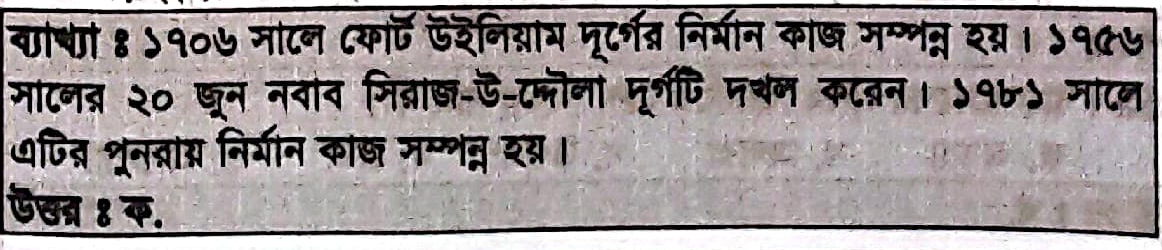 ব্যাখ্যা ঃ ১৭০৬ সালে ফোর্ট উইলিয়াম দূর্গের নির্মান কাজ সম্পন্ন হয়। ১৭৫৬
সালের ২০ জুন নবাব সিরাজ-উ-দ্দৌলা দূর্গটি দখল করেন। ১৭৮১ সালে
এটির পুনরায় নির্মান কাজ সম্পন্ন হয়।
উত্তর ঃ ক.